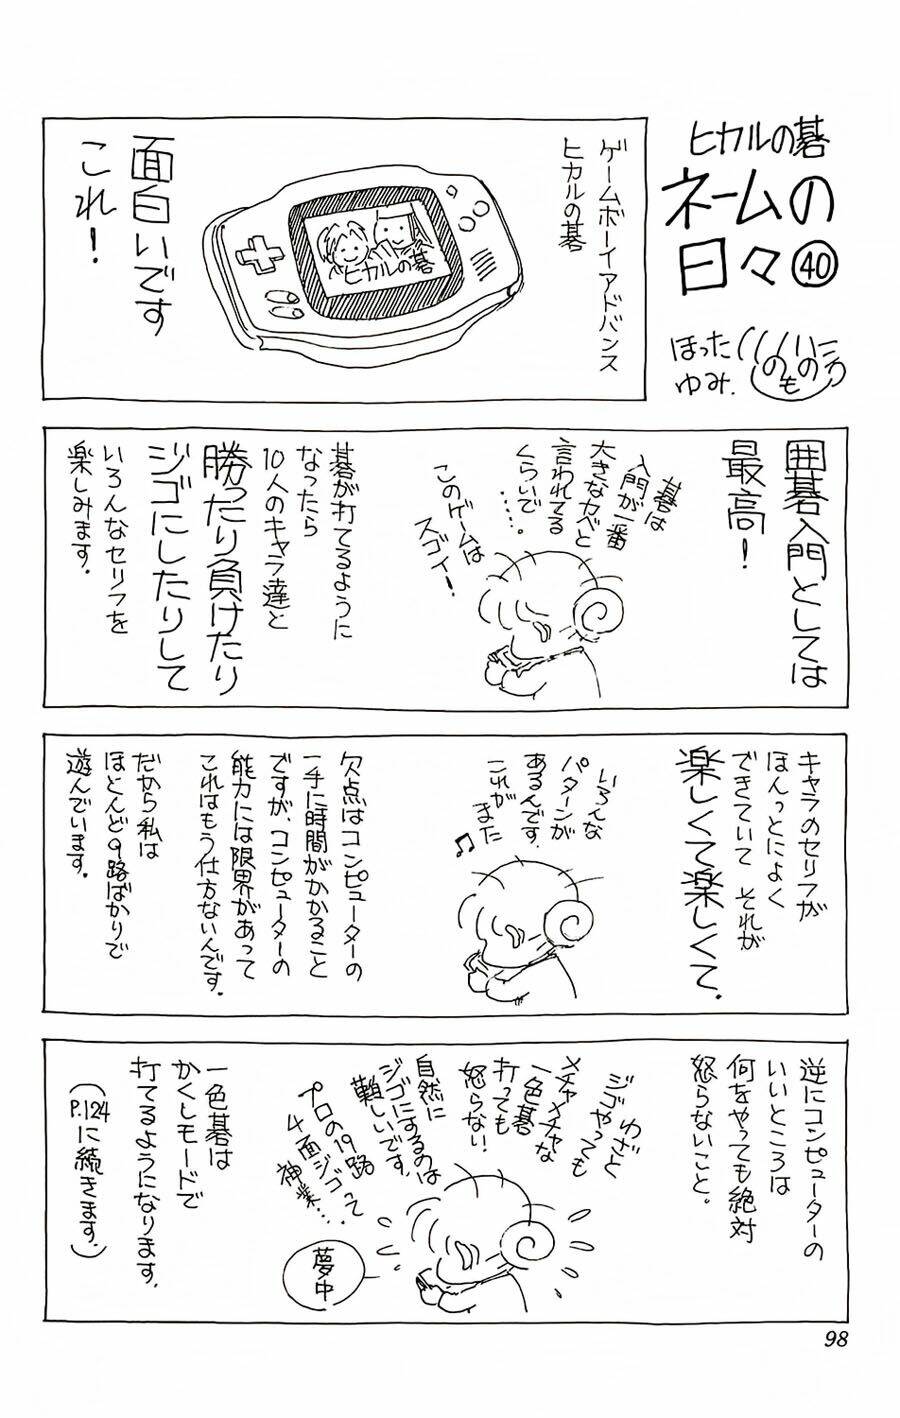 ヒカルの碁
ネームの
日々㊵
ほった
ゆみ.
ゲームボーイアドバンス
ヒカルの碁
ヒカルの碁
面白いです
これ！
囲碁入門としては
最高！
碁は
入門が一番
大きなカベと
言われてる
くらいで
……。
このゲームは
スゴイ！
碁が打てるように
なったら
10人のキャラ達と
勝ったり負けたり
ジゴにしたりして
いろんなセリフを
楽しみます.
キャラのセリフが
ほんっとによく
できていて それが
楽しくて楽しくて.
いろんな
パターンが
あるんです.
これが
また
♫
欠点はコンピューターの
一手に時間がかかること
ですが、コンピューターの
能力には限界があって
これはもう仕方ないんです.
だから私は
ほとんど9路ばかりで
遊んでいます.
逆にコンピューターの
いいところは
何をやっても絶対
怒らないこと。
わざと
ジゴやっても
メチャメチャな
一色碁
打っても
怒らない！
自然に
ジゴにするのは
難しいです.
プロの19路
4面ジゴって
神業….
夢中
一色碁は
かくしモードで
打てるようになります.
（P.124に続きます.）
98